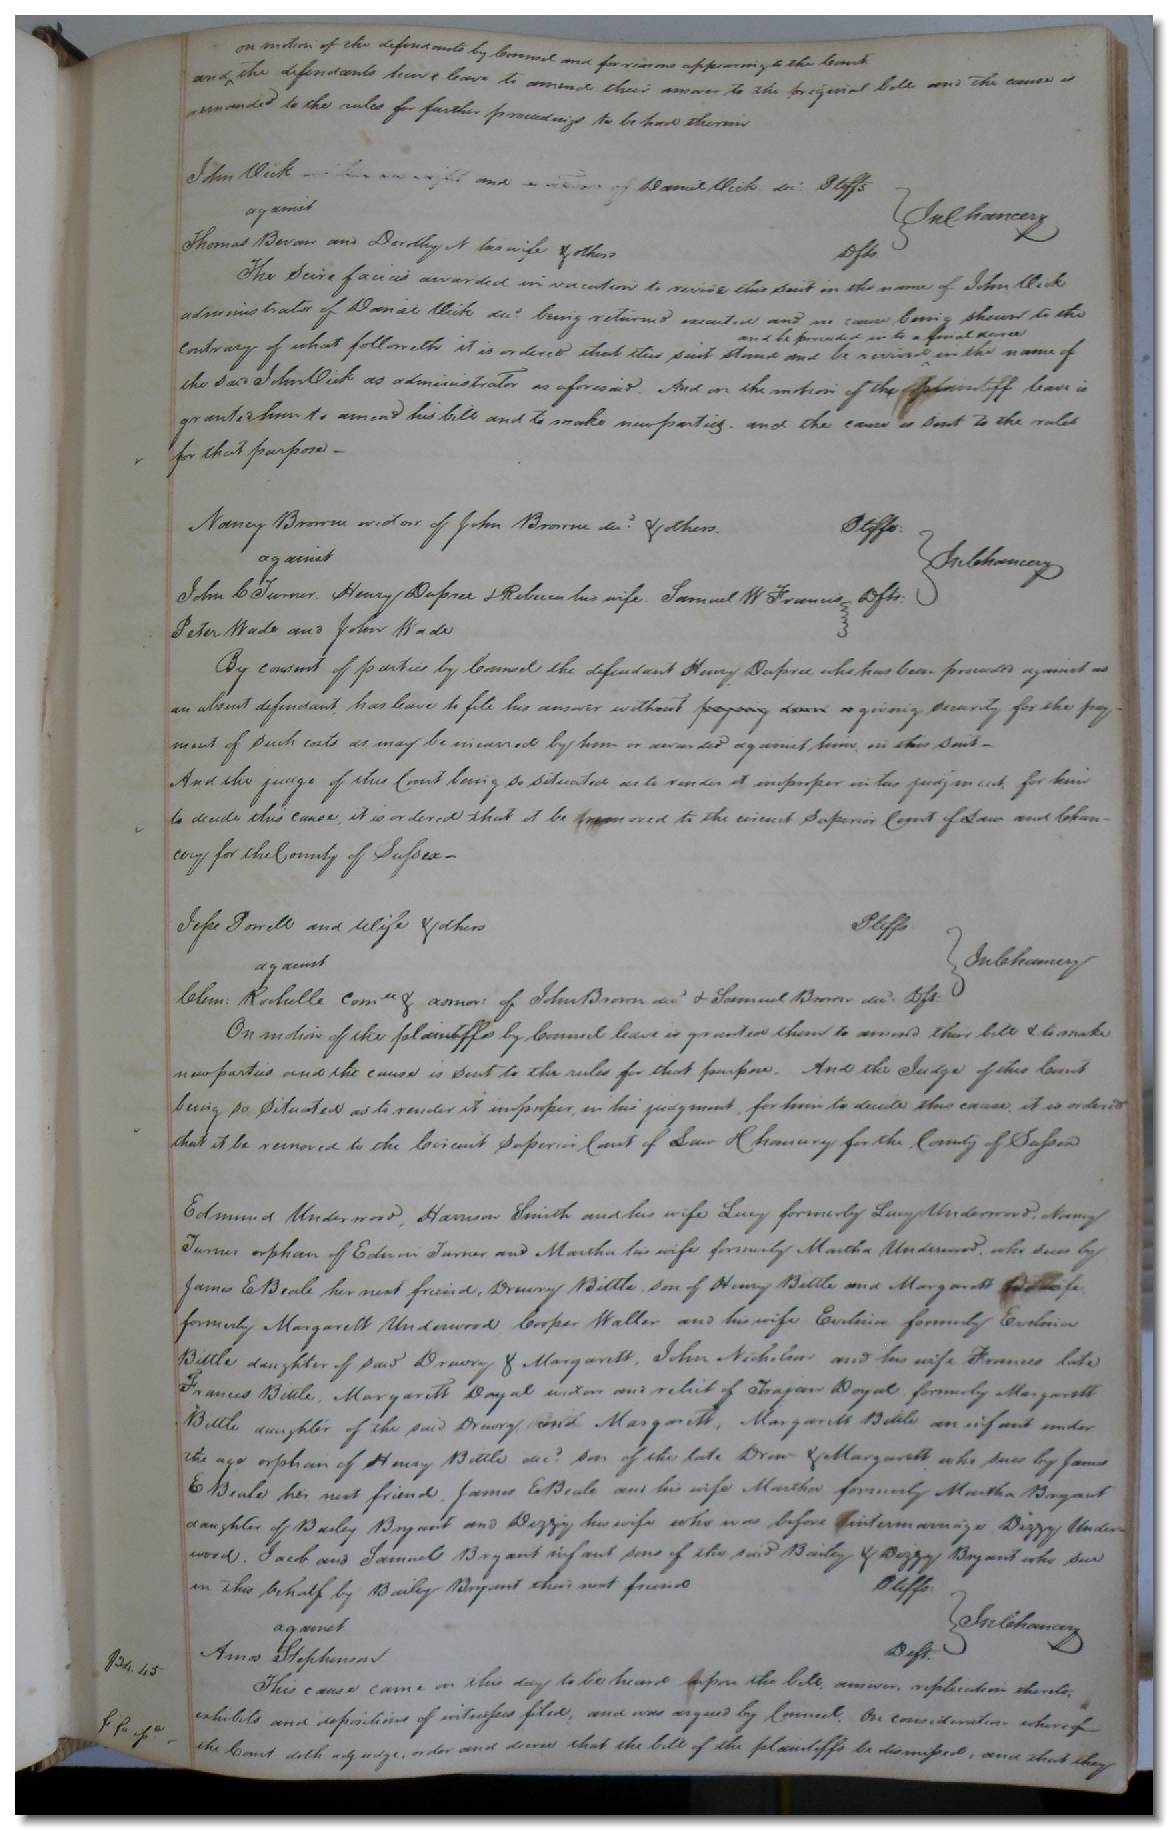 on motion of the defendants by Counsel and for reasons appearing to the Court
and the defendants have leave to amend their answer to the original bill and the cause is
remanded to the rules for further proceedings to be had therein
John Vick and of Daniel Vick decd. Pltffs.
against
In Chancery
Thomas Bevan and Dorothy N his wife & others Dfts.
The Scire facias awarded in vacation to revive this suit in the name of John Vick
administrator of Daniel Vick decd. being returned executed and no cause being shewn to the
and be proceeded in to a final decree
contrary of what followeth it is ordered that this suit stand and be revived in the name of
the said John Vick as administrator as aforesaid. And on the motion of the plaintiff leave is
granted him to amend his bill and to make new parties. and the cause is sent to the rules
for that purpose –
Nancy Browne widow of John Browne decd. & others. Pltffs.
against
In Chancery
John C Turner. Henry Dupree & Rebecca his wife. Samuel W Francis Dfts.
Peter Wade and John Wade
By consent of parties by Counsel the defendant Henry Dupree who has been proceeded against as
an absent defendant, has leave to file his answer without giving security for the pay-
ment of such costs as may be incurred by him or awarded against him, in this suit –
And the judge of this Court being so situated as to render it improper in his judgment, for him
to decide this cause, it is ordered that it be removed to the circuit Superior Court of Law and Chan-
cery for the County of Sussex –
Jesse Powell and Wife & others Pltffs
against
In Chancery
Clem: Rochelle comee & admor: of John Brown decd & Samuel Brown decd. Dft:
On motion of the plaintiffs by Counsel leave is granted them to amend their bill & to make
new parties and the cause is sent to the rules for that purpose. And the Judge of this Court
being so situated as to render it improper, in his judgment, for him to decide this cause, it is ordered
that it be removed to the Circuit Superior Court of Law & Chancery for the County of Sussex
Edmund Underwood, Harrison Smith and his wife Lucy formerly Lucy Underwood, Nancy
Turner orphan of Edwin Turner and Martha his wife formerly Martha Underwood, who sues by
James E Beale her next friend, Drewry Bittle, son of Henry Bittle and Margarett his wife,
formerly Margarett Underwood Cooper Waller and his wife Evelina formerly Evelina
Bittle daughter of said Drewry & Margarett, John Nicholson and his wife Frances late
Frances Bittle, Margarett Doyal widow and relict of Trajan Doyal, formerly Margarett
Bittle daughter of the said Drewry and Margarett, Margarett Bittle an infant under
the age orphan of Henry Bittle decd. son of the late Drew & Margarett who sues by James
E Beale her next friend, James E Beale and his wife Martha formerly Martha Bryant
daughter of Bailey Bryant and Dizzy his wife who was before intermarriage Dizzy Under-
wood, Jacob and Samuel Bryant infant sons of the said Bailey & Dizzy Bryant who sue
in this behalf by Bailey Bryant their next friend Pltffs.
against
In Chancery
Amos Stephenson Deft.
This cause came on this day to be heard upon the bill, answer, replication thereto,
exhibits and depositions of witnesses filed, and was argued by Counsel. On consideration whereof
the Court doth adjudge, order and decree that the bill of the plaintiffs be dismissed, and that they